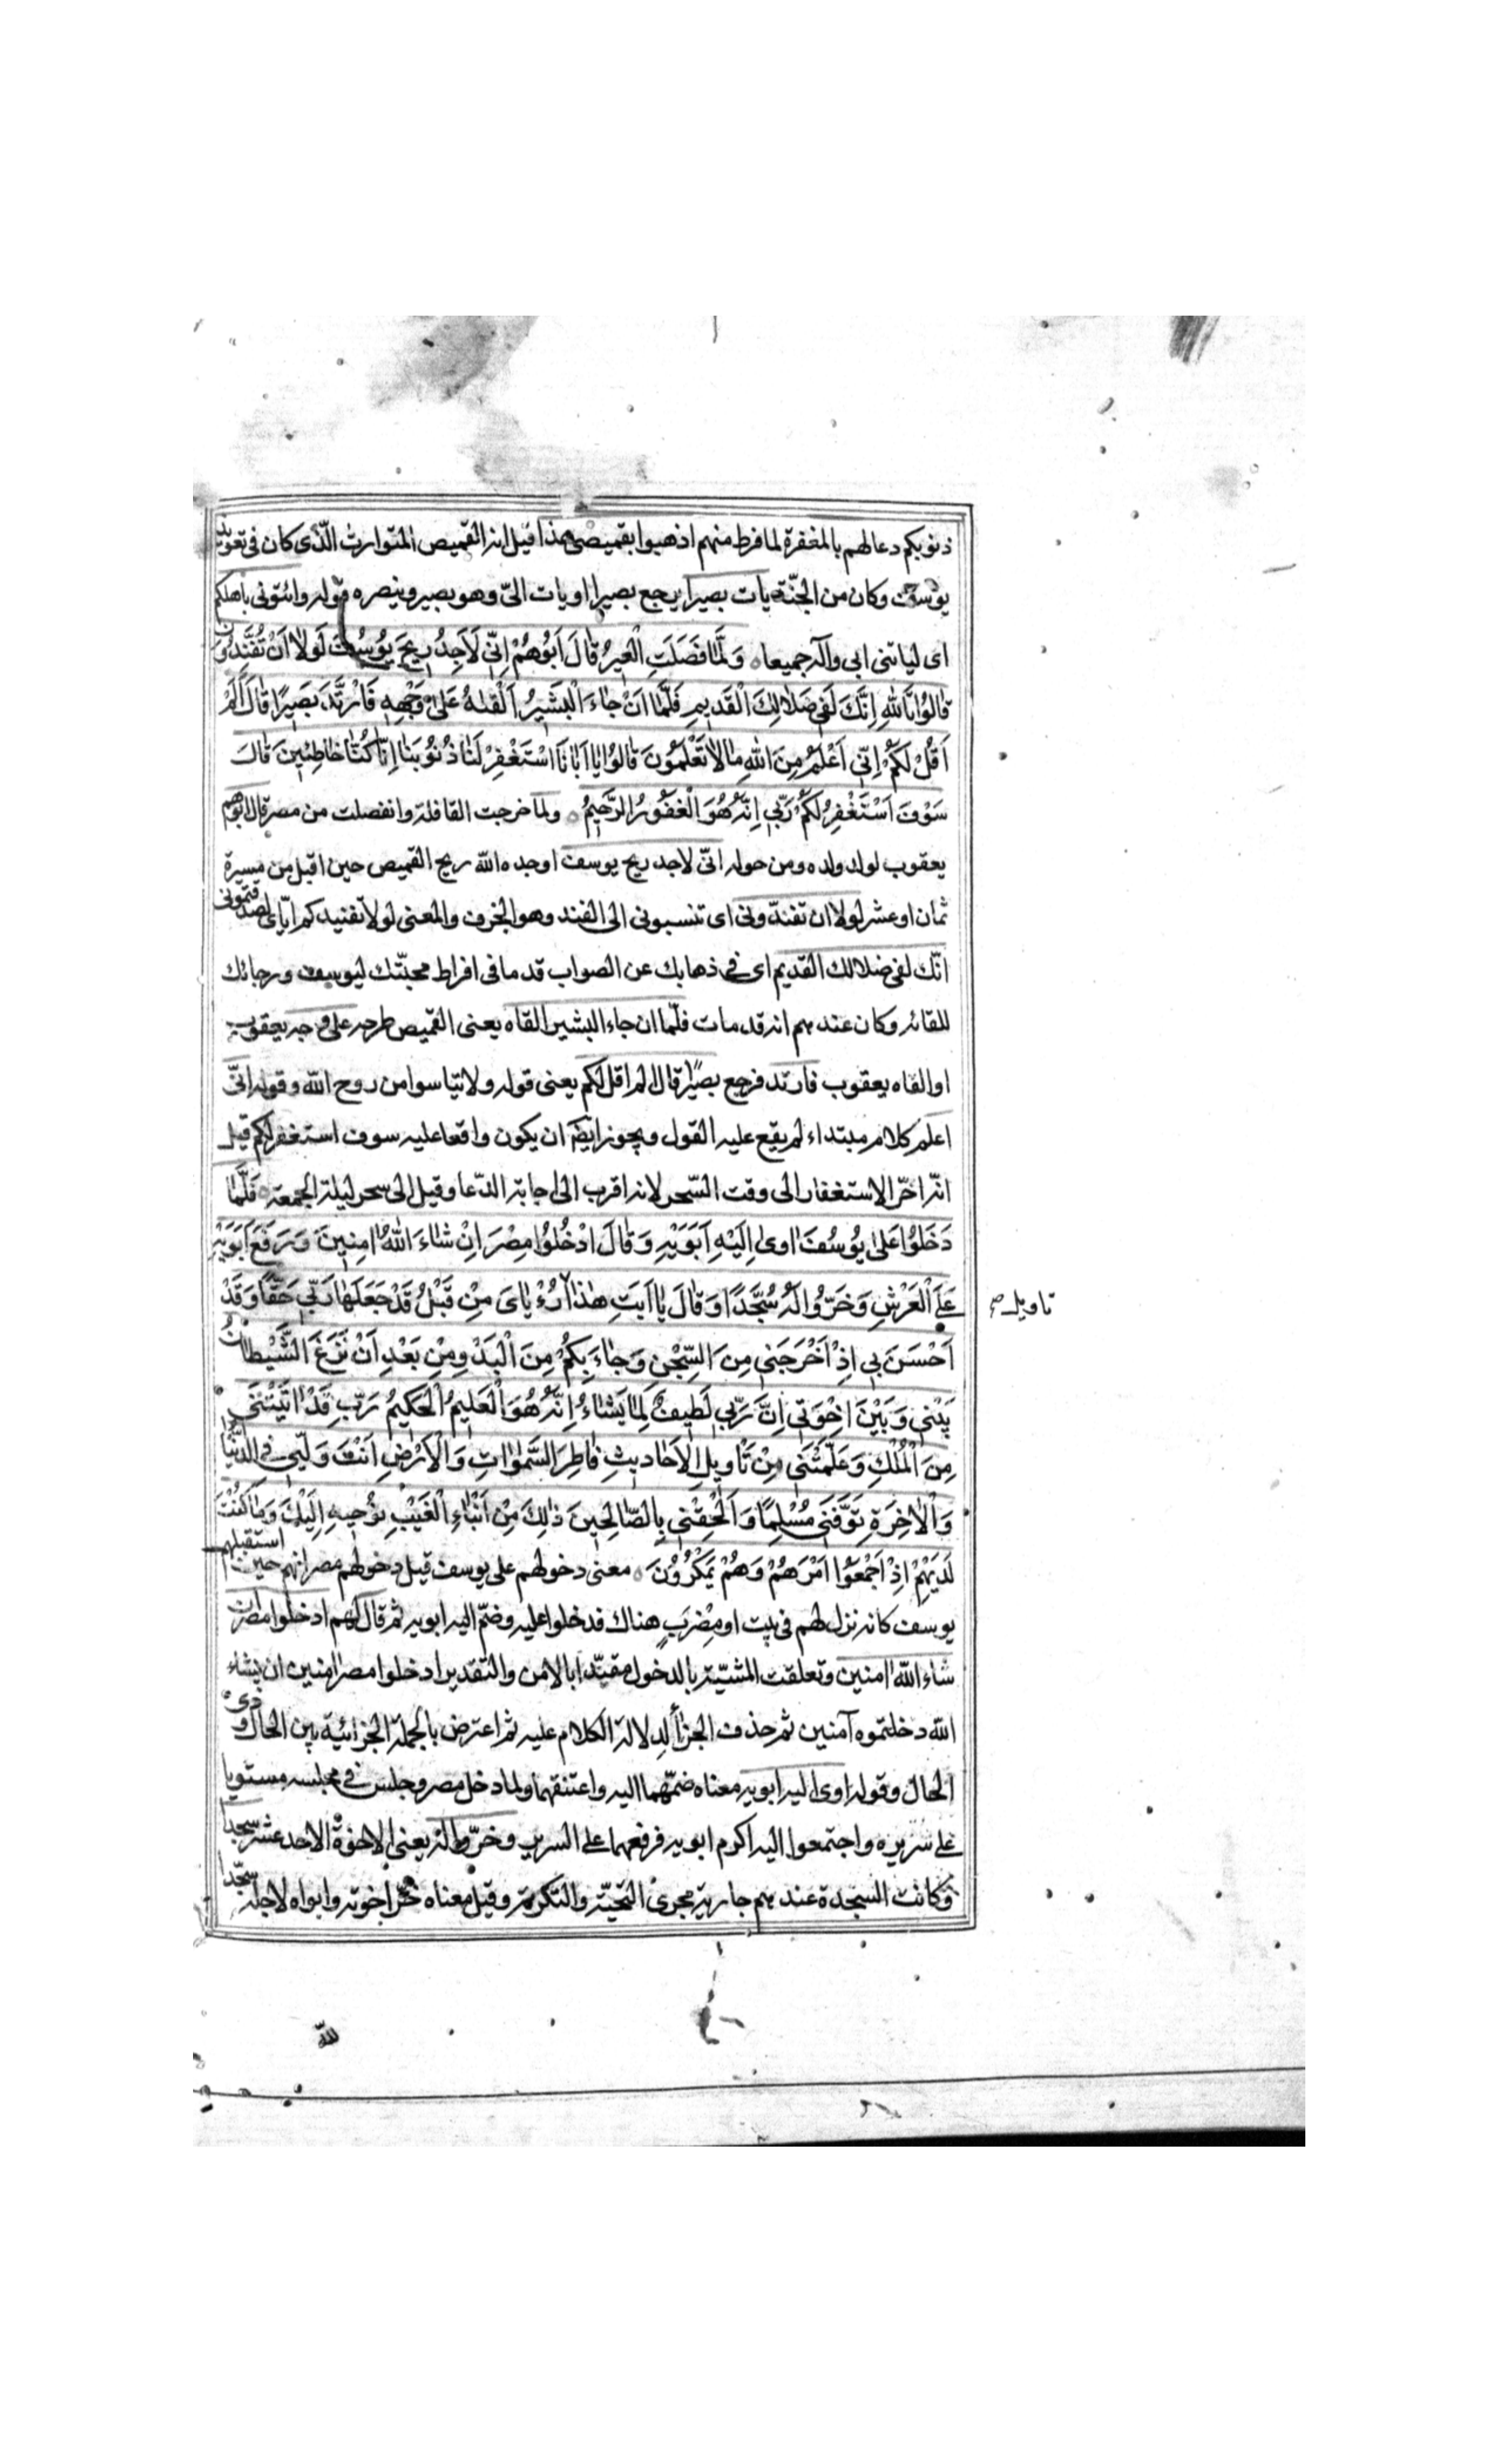 ذنوبكم دعا لهم بالمغفرة لما فرط منهم اذهبوا بقميصى هذا قيل انه القميص المتوارث الّذى كان فى تعويذ
يوسف وكان من الجنّة يات بصيرا يرجع بصيرا او يات الىّ وهو بصير وينصره قوله وائتونى باهلكم
اى لياتنى ابى وآله جميعا ه وَلَمَّا فَصَلَتِ الْعيرُ قالَ اَبُوهُمْ اِنّى لَاَجِدُ ريحَ يُوسُفَ لَولا اَنْ تُفَنِّدُونِ
قالُوا تَاللهِ اِنَّكَ لَفى ضَلالِكَ الْقَديمِ فَلَمّا اَنْ جاءَ الْبَشيرُ اَلْقيهُ عَلى وَجْهِهِ فَارْتَدَّ بَصيرًا قالَ اَلَمْ
اَقُلْ لَكُمْ اِنّى اَعْلَمُ مِنَ اللهِ مالا تَعْلَمُونَ قالُوا يا اَبانَا اسْتَغْفِرْ لَنا ذُنُوبَنا اِنّا كُنّا خاطِئينَ قالَ
سَوْفَ اَسْتَغْفِرُ لَكُمْ رَبّى اِنَّهُ هُوَ الْغَفُورُ الرَّحيمُ ه ولما خرجت القافلة وانفصلت من مصر قال ابوهم
يعقوب لولد ولده ومن حوله انّى لاجد ريح يوسف اوجده الله ريح القميص حين اقبل من مسيرة
ثمان او عشر لولا ان تفنّدونى اى تنسبونى الى الفند وهو الخرف والمعنى لولا تفنيدكم ايّاى لصدقتمونى
انّك لفى ضلالك القديم اى فى ذهابك عن الصواب قدما فى افراط محبّتك ليوسف ورجائك
للقائه وكان عندهم انه قد مات فلمّا ان جاء البشير القاه يعنى القميص طرحه على وجه يعقوب
او القاه يعقوب فارتد فرجع بصيرًا قال الم اقل لكم يعنى قوله ولا تيأسوا من روح الله وقوله انّى
اعلم كلام مبتداء لم يقع عليه القول ويجوز ايضا ان يكون واقعا عليه سوف استغفر لكم قيل
انّه اخّر الاستغفار الى وقت السّحر لانه اقرب الى اجابة الدّعا وقيل الى سحر ليلة الجمعة ه فَلَمّا
دَخَلُوا عَلى يُوسُفَ اوى اِلَيْهِ اَبَوَيْهِ وَقالَ ادْخُلُوا مِصْرَ اِنْ شاءَ اللهُ امِنينَ وَرَفَعَ اَبَوَيْهِ
عَلَى الْعَرْشِ وَخَرُّوا لَهُ سُجَّدًا وَقالَ يا اَبَتِ هذا رُءْياىَ مِنْ قَبْلُ قَدْ جَعَلَها رَبّى حَقًّا وَقَدْ
تاويل صح
اَحْسَنَ بى اِذْ اَخْرَجَنى مِنَ السِّجْنِ وَجاءَ بِكُمْ مِنَ الْبَدْوِ مِنْ بَعْدِ اَنْ نَزَغَ الشَّيْطانُ
بَيْنى وَبَيْنَ اِخْوَتى اِنَّ رَبّى لَطيفٌ لِما يَشاءُ اِنَّهُ هُوَ الْعَليمُ الْحَكيمُ رَبِّ قَدْ اتَيْتَنى
مِنَ الْمُلْكِ وَعَلَّمْتَنى مِنْ تَاْويلِ الْاَحاديثِ فاطِرَ السَّمواتِ وَالْاَرْضِ اَنْتَ وَلِيّى فِى الدُّنْيا
وَالْاخِرَةِ تَوَفَّنى مُسْلِمًا وَاَلْحِقْنى بِالصّالِحينَ ذلِكَ مِنْ اَنْباءِ الْغَيْبِ نُوحيهِ اِلَيْكَ وَما كُنْتَ
لَدَيْهِمْ اِذْ اَجْمَعُوا اَمْرَهُمْ وَهُمْ يَمْكُرُونَ ه معنى دخولهم على يوسف قبل دخولهم مصر انهم حين استقبلهم
يوسف كانه نزل لهم فى بيت او مِضْرَبٍ هناك فدخلوا عليه وضمّ اليه ابويه ثم قال لهم ادخلوا مصر ان
شاء الله امنين وتعلقت المشيّة بالدخول مقيّدا بالامن والتقدير ادخلوا مصر امنين ان يشاء
الله دخلتموه آمنين ثم حذف الجزاء لدلالة الكلام عليه ثم اعترض بالجملة الجزائية بين الحال وذى
الحال وقوله اوى اليه ابويه معناه ضمّهما اليه واعتنقهما ولما دخل مصر وجلس فى مجلسه مستويا
على سريره واجتمعوا اليه اكرم ابويه فرفعهما على السرير وخرّوا له يعنى الاخوة الاحد عشر سجدا
وكانت السجدة عندهم جارية مجرى التحيّة والتكرمة وقيل معناه خرّ اخوته وابواه لاجله سجّدا
لله